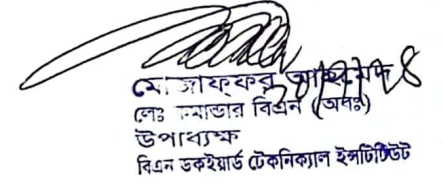 মোজাফ্ফর আহমেদ
লেঃ কমান্ডার বিএন (অবঃ)
উপাধ্যক্ষ
বিএন ডকইয়ার্ড টেকনিক্যাল ইন্সটিটিউট